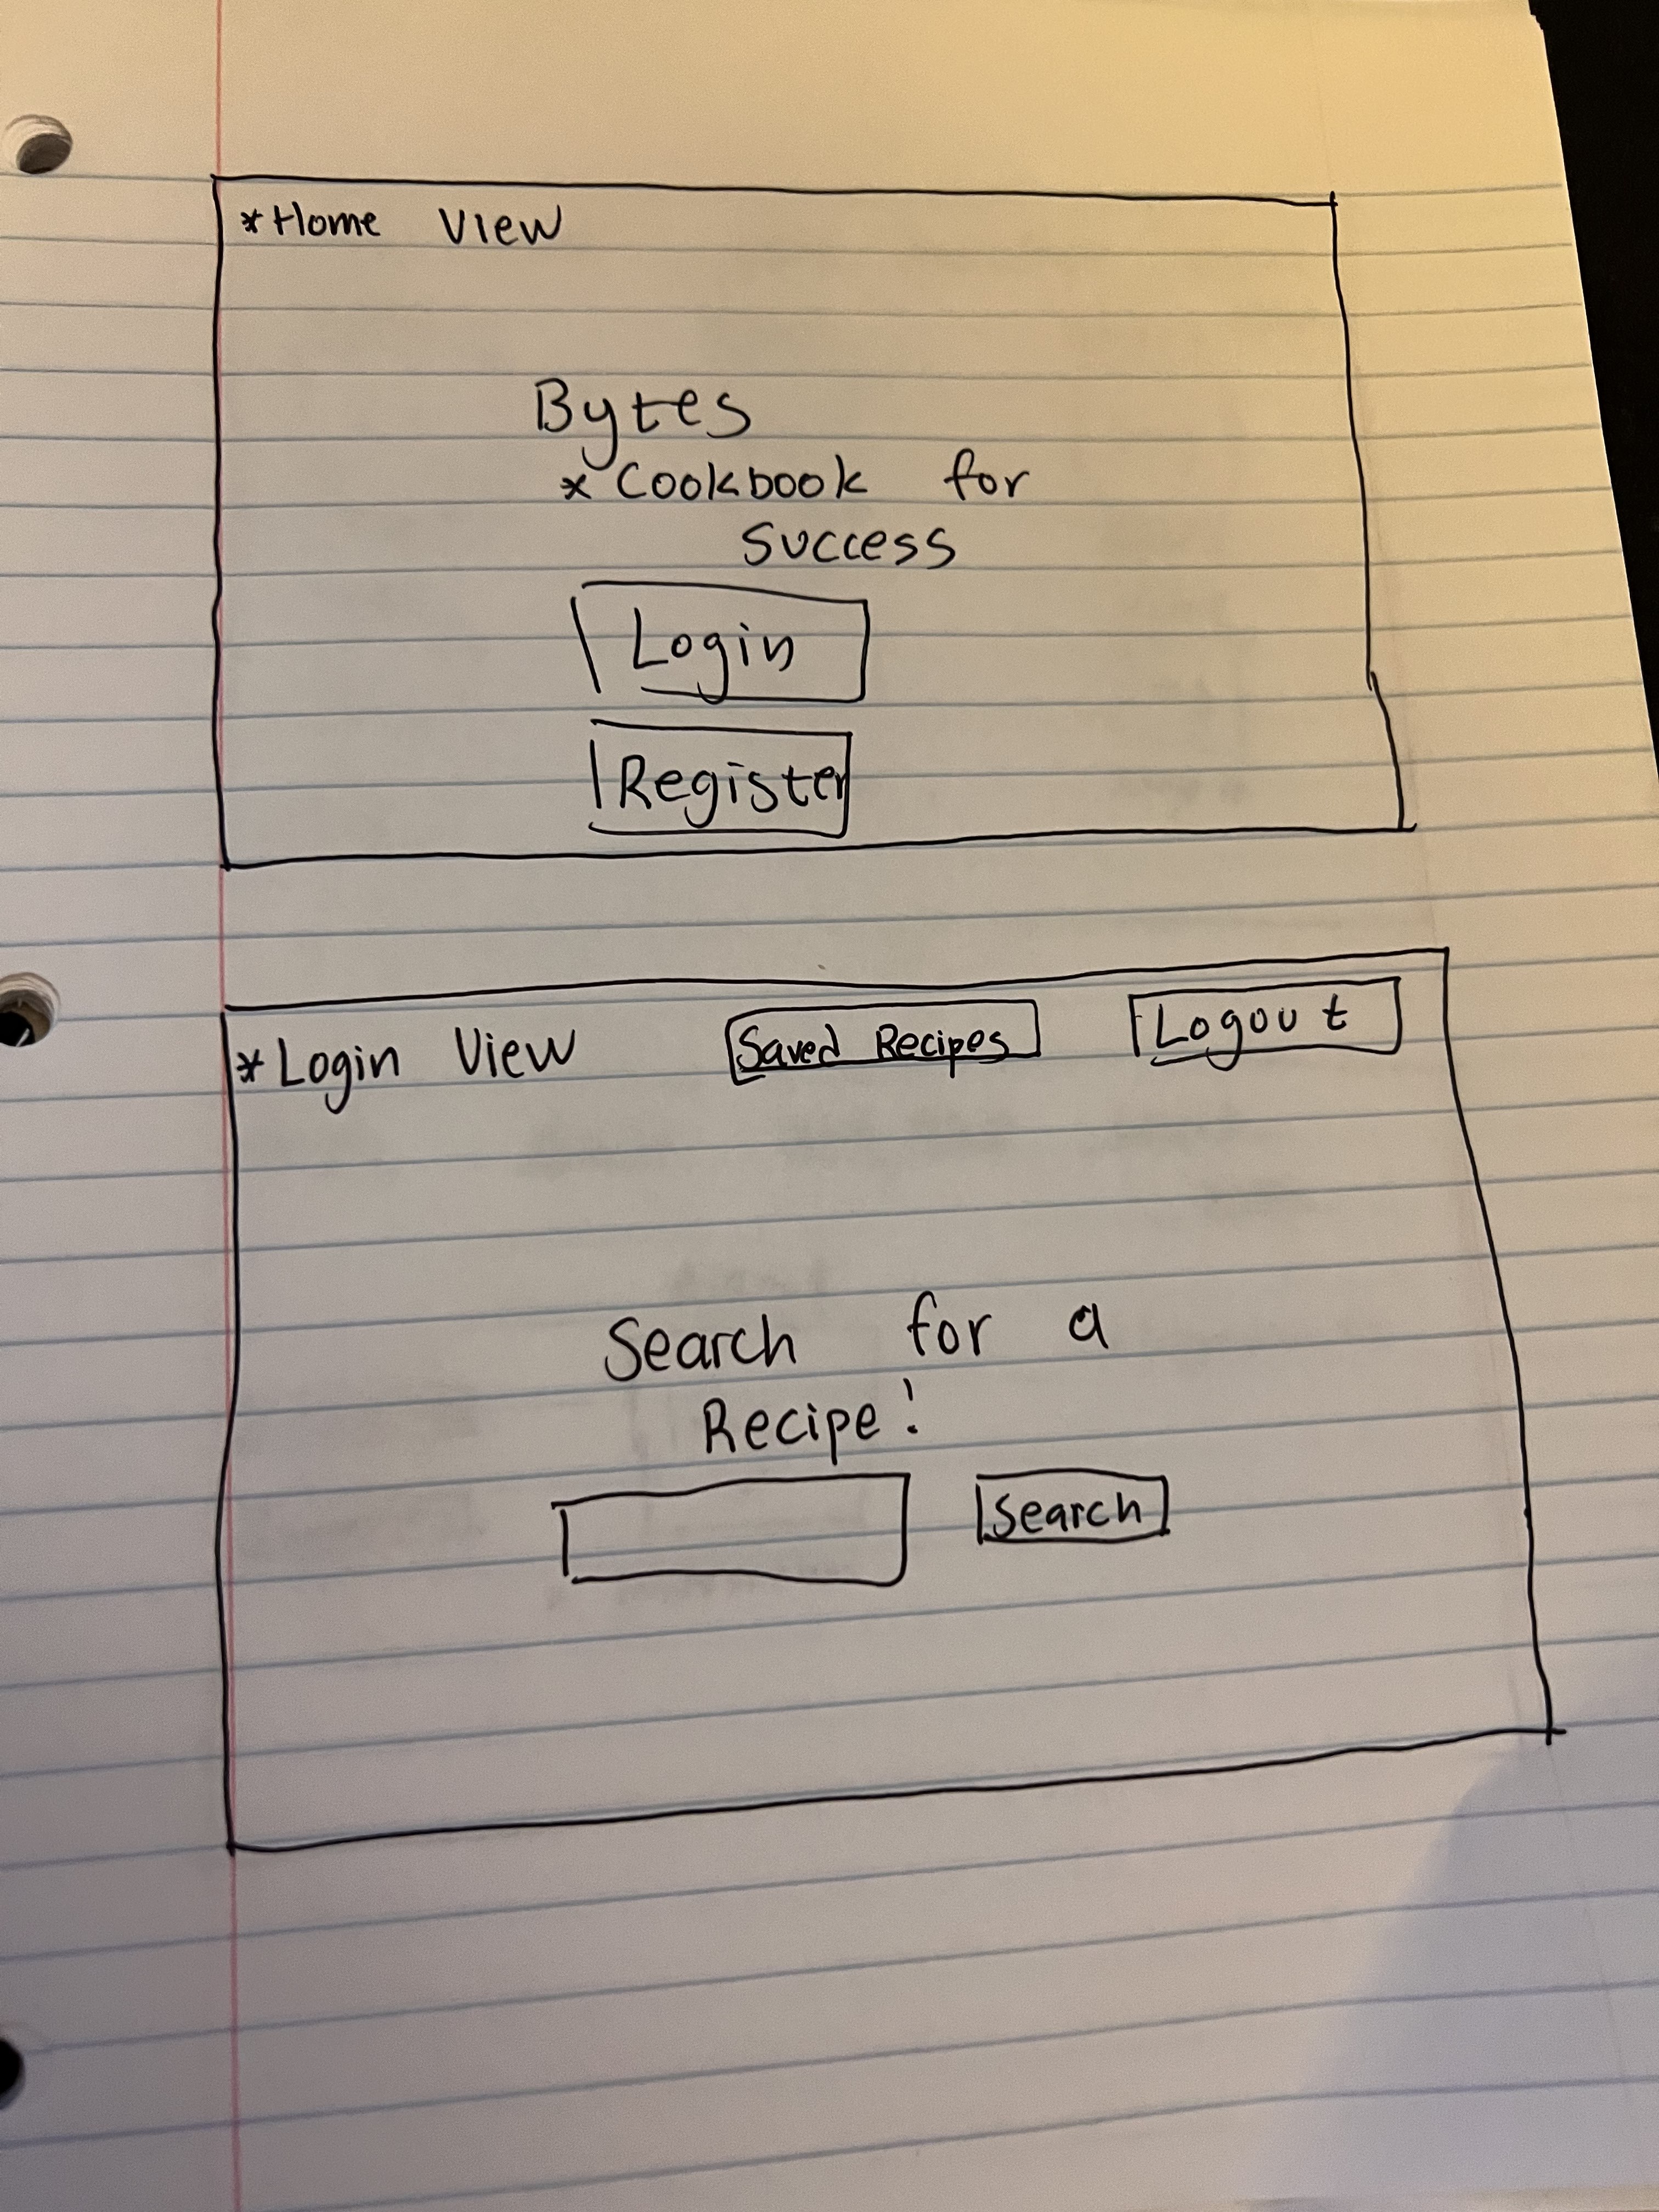 *Home View
Bytes
* Cookbook for
Success
Login
Register
*Login View Saved Recipes Logout
Search for a
Recipe!
Search